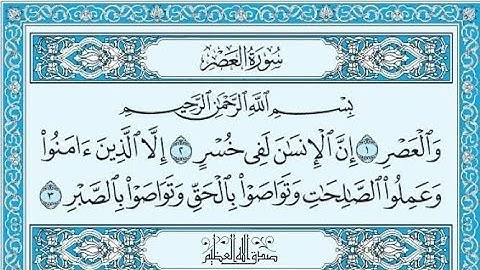 سُورَةُ العَصْرِ
بِسْمِ اللَّهِ الرَّحْمَٰنِ الرَّحِيمِ
وَالْعَصْرِ ١ إِنَّ الْإِنسَانَ لَفِي خُسْرٍ ٢ إِلَّا الَّذِينَ ءَامَنُوا
وَعَمِلُوا الصَّالِحَاتِ وَتَوَاصَوْا بِالْحَقِّ وَتَوَاصَوْا بِالصَّبْرِ ٣
صدق الله العظيم